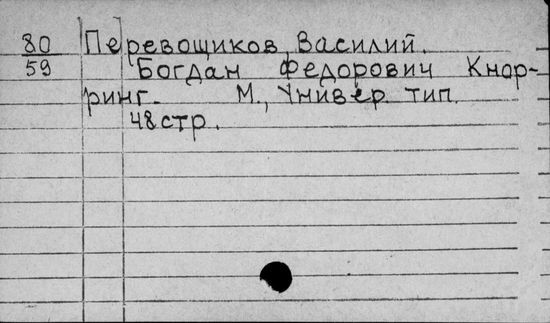 80 Перевощиков, Василий.
59 Богдан Федорович Кнор-
ринг. М., Универ. тип.
48 стр.